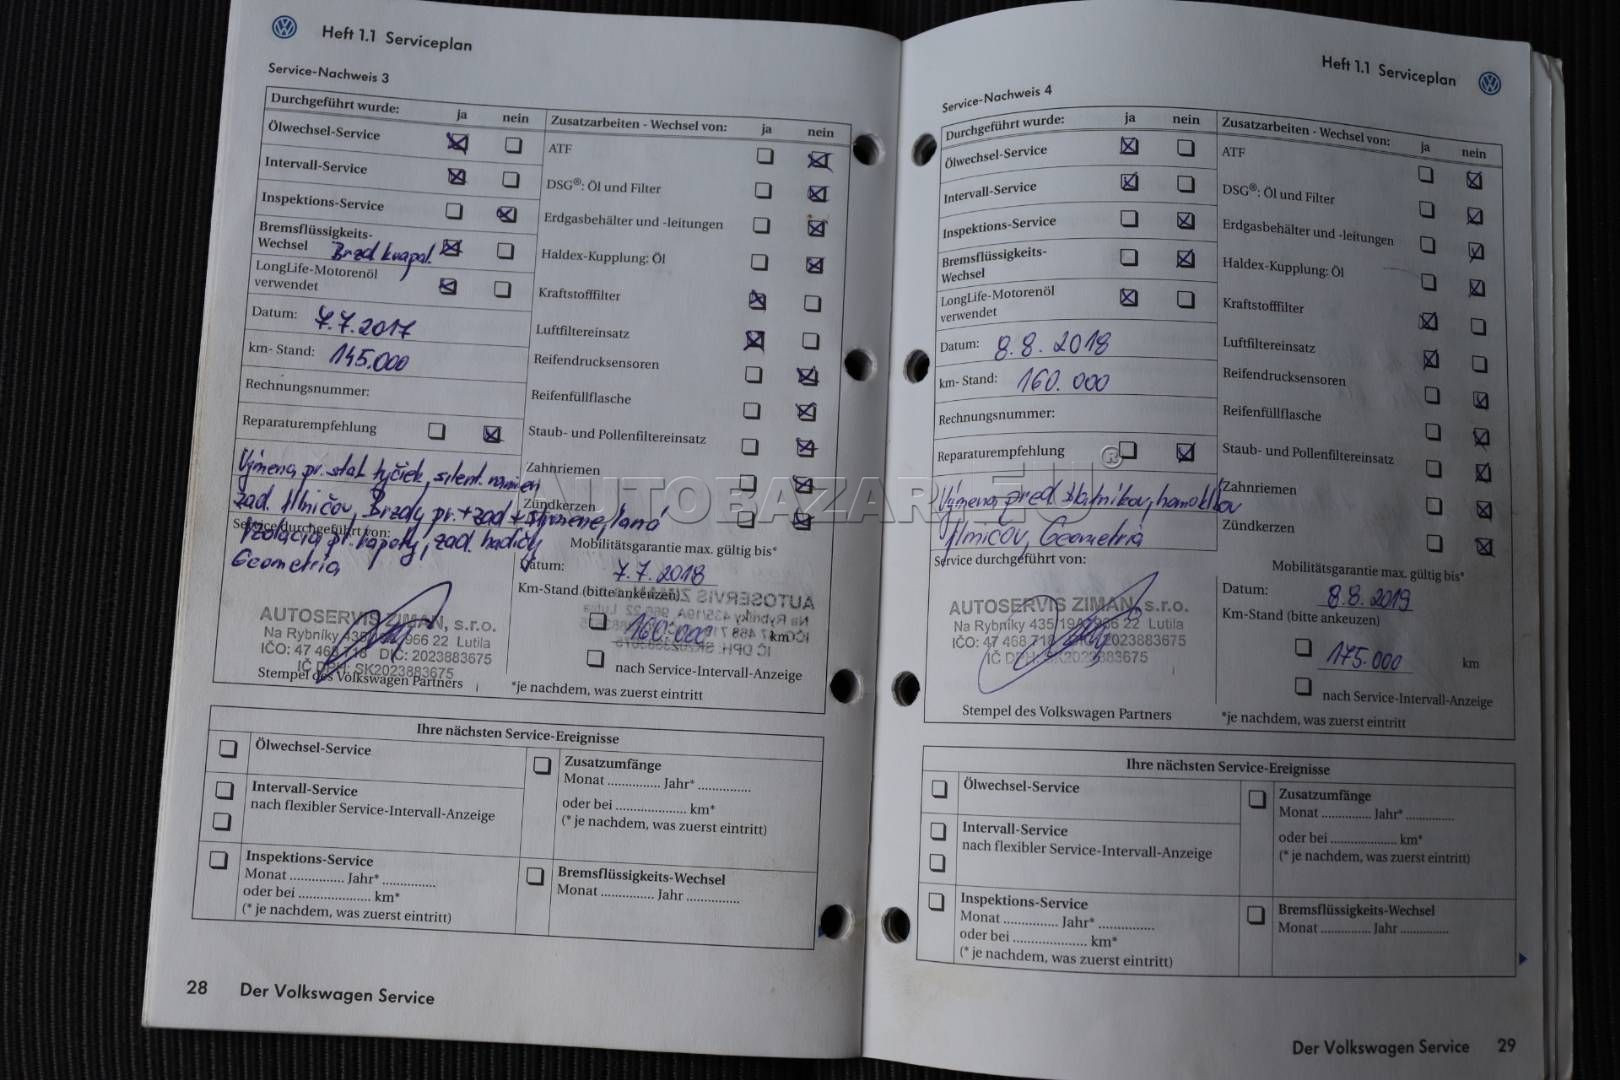 Heft 1.1 Serviceplan
Service-Nachweis 3
Durchgeführt wurde: ja nein
Ölwechsel-Service
Intervall-Service
Inspektions-Service
Bremsflüssigkeits-
Wechsel Brzd kvapal.
LongLife-Motorenöl
verwendet
Datum: 7.7.2017
km- Stand: 145.000
Rechnungsnummer:
Reparaturempfehlung
Výmena pr. stab tyčiek, silent. ramien
zad. tlmičov, Brzdy pr. + zad +
Service durchgeführt von:
Izolácia pr. kapoty, zad.
Geometria
AUTOSERVIS ZIMAN, s.r.o.
Na Rybníky 435/ 966 22 Lutila
IČO: 47 468 718 DIČ: 2023883675
IČ DPH: SK2023883675
Stempel des Volkswagen Partners
Zusatzarbeiten - Wechsel von: ja nein
ATF
DSG®: Öl und Filter
Erdgasbehälter und -leitungen
Haldex-Kupplung: Öl
Kraftstofffilter
Luftfiltereinsatz
Reifendrucksensoren
Reifenfüllflasche
Staub- und Pollenfiltereinsatz
Zahnriemen
Zündkerzen
Mobilitätsgarantie max. gültig bis*
Datum: 7.7.2018
Km-Stand (bitte ankeuzen)
160.000 km
nach Service-Intervall-Anzeige
*je nachdem, was zuerst eintritt
Ihre nächsten Service-Ereignisse
Ölwechsel-Service
Intervall-Service
nach flexibler Service-Intervall-Anzeige
Inspektions-Service
Monat .............. Jahr* ..............
oder bei ................... km*
(* je nachdem, was zuerst eintritt)
Zusatzumfänge
Monat .............. Jahr* ..............
oder bei ................... km*
(* je nachdem, was zuerst eintritt)
Bremsflüssigkeits-Wechsel
Monat .............. Jahr ..............
28 Der Volkswagen Service
Heft 1.1 Serviceplan
Service-Nachweis 4
Durchgeführt wurde: ja nein
Ölwechsel-Service
Intervall-Service
Inspektions-Service
Bremsflüssigkeits-
Wechsel
LongLife-Motorenöl
verwendet
Datum: 8.8.2018
km- Stand: 160.000
Rechnungsnummer:
Reparaturempfehlung
Výmena pred.
tlmičov, Geometria
Service durchgeführt von:
AUTOSERVIS ZIMAN, s.r.o.
Na Rybníky 435/19A, 966 22 Lutila
IČO: 47 468 718 DIČ: 2023883675
IČ DPH: SK2023883675
Stempel des Volkswagen Partners
Zusatzarbeiten - Wechsel von: ja nein
ATF
DSG®: Öl und Filter
Erdgasbehälter und -leitungen
Haldex-Kupplung: Öl
Kraftstofffilter
Luftfiltereinsatz
Reifendrucksensoren
Reifenfüllflasche
Staub- und Pollenfiltereinsatz
Zahnriemen
Zündkerzen
Mobilitätsgarantie max. gültig bis*
Datum: 8.8.2019
Km-Stand (bitte ankeuzen)
175.000 km
nach Service-Intervall-Anzeige
*je nachdem, was zuerst eintritt
Ihre nächsten Service-Ereignisse
Ölwechsel-Service
Intervall-Service
nach flexibler Service-Intervall-Anzeige
Inspektions-Service
Monat .............. Jahr* ..............
oder bei ................... km*
(* je nachdem, was zuerst eintritt)
Zusatzumfänge
Monat .............. Jahr* ..............
oder bei ................... km*
(* je nachdem, was zuerst eintritt)
Bremsflüssigkeits-Wechsel
Monat .............. Jahr ..............
Der Volkswagen Service 29
AUTOBAZAR.EU®